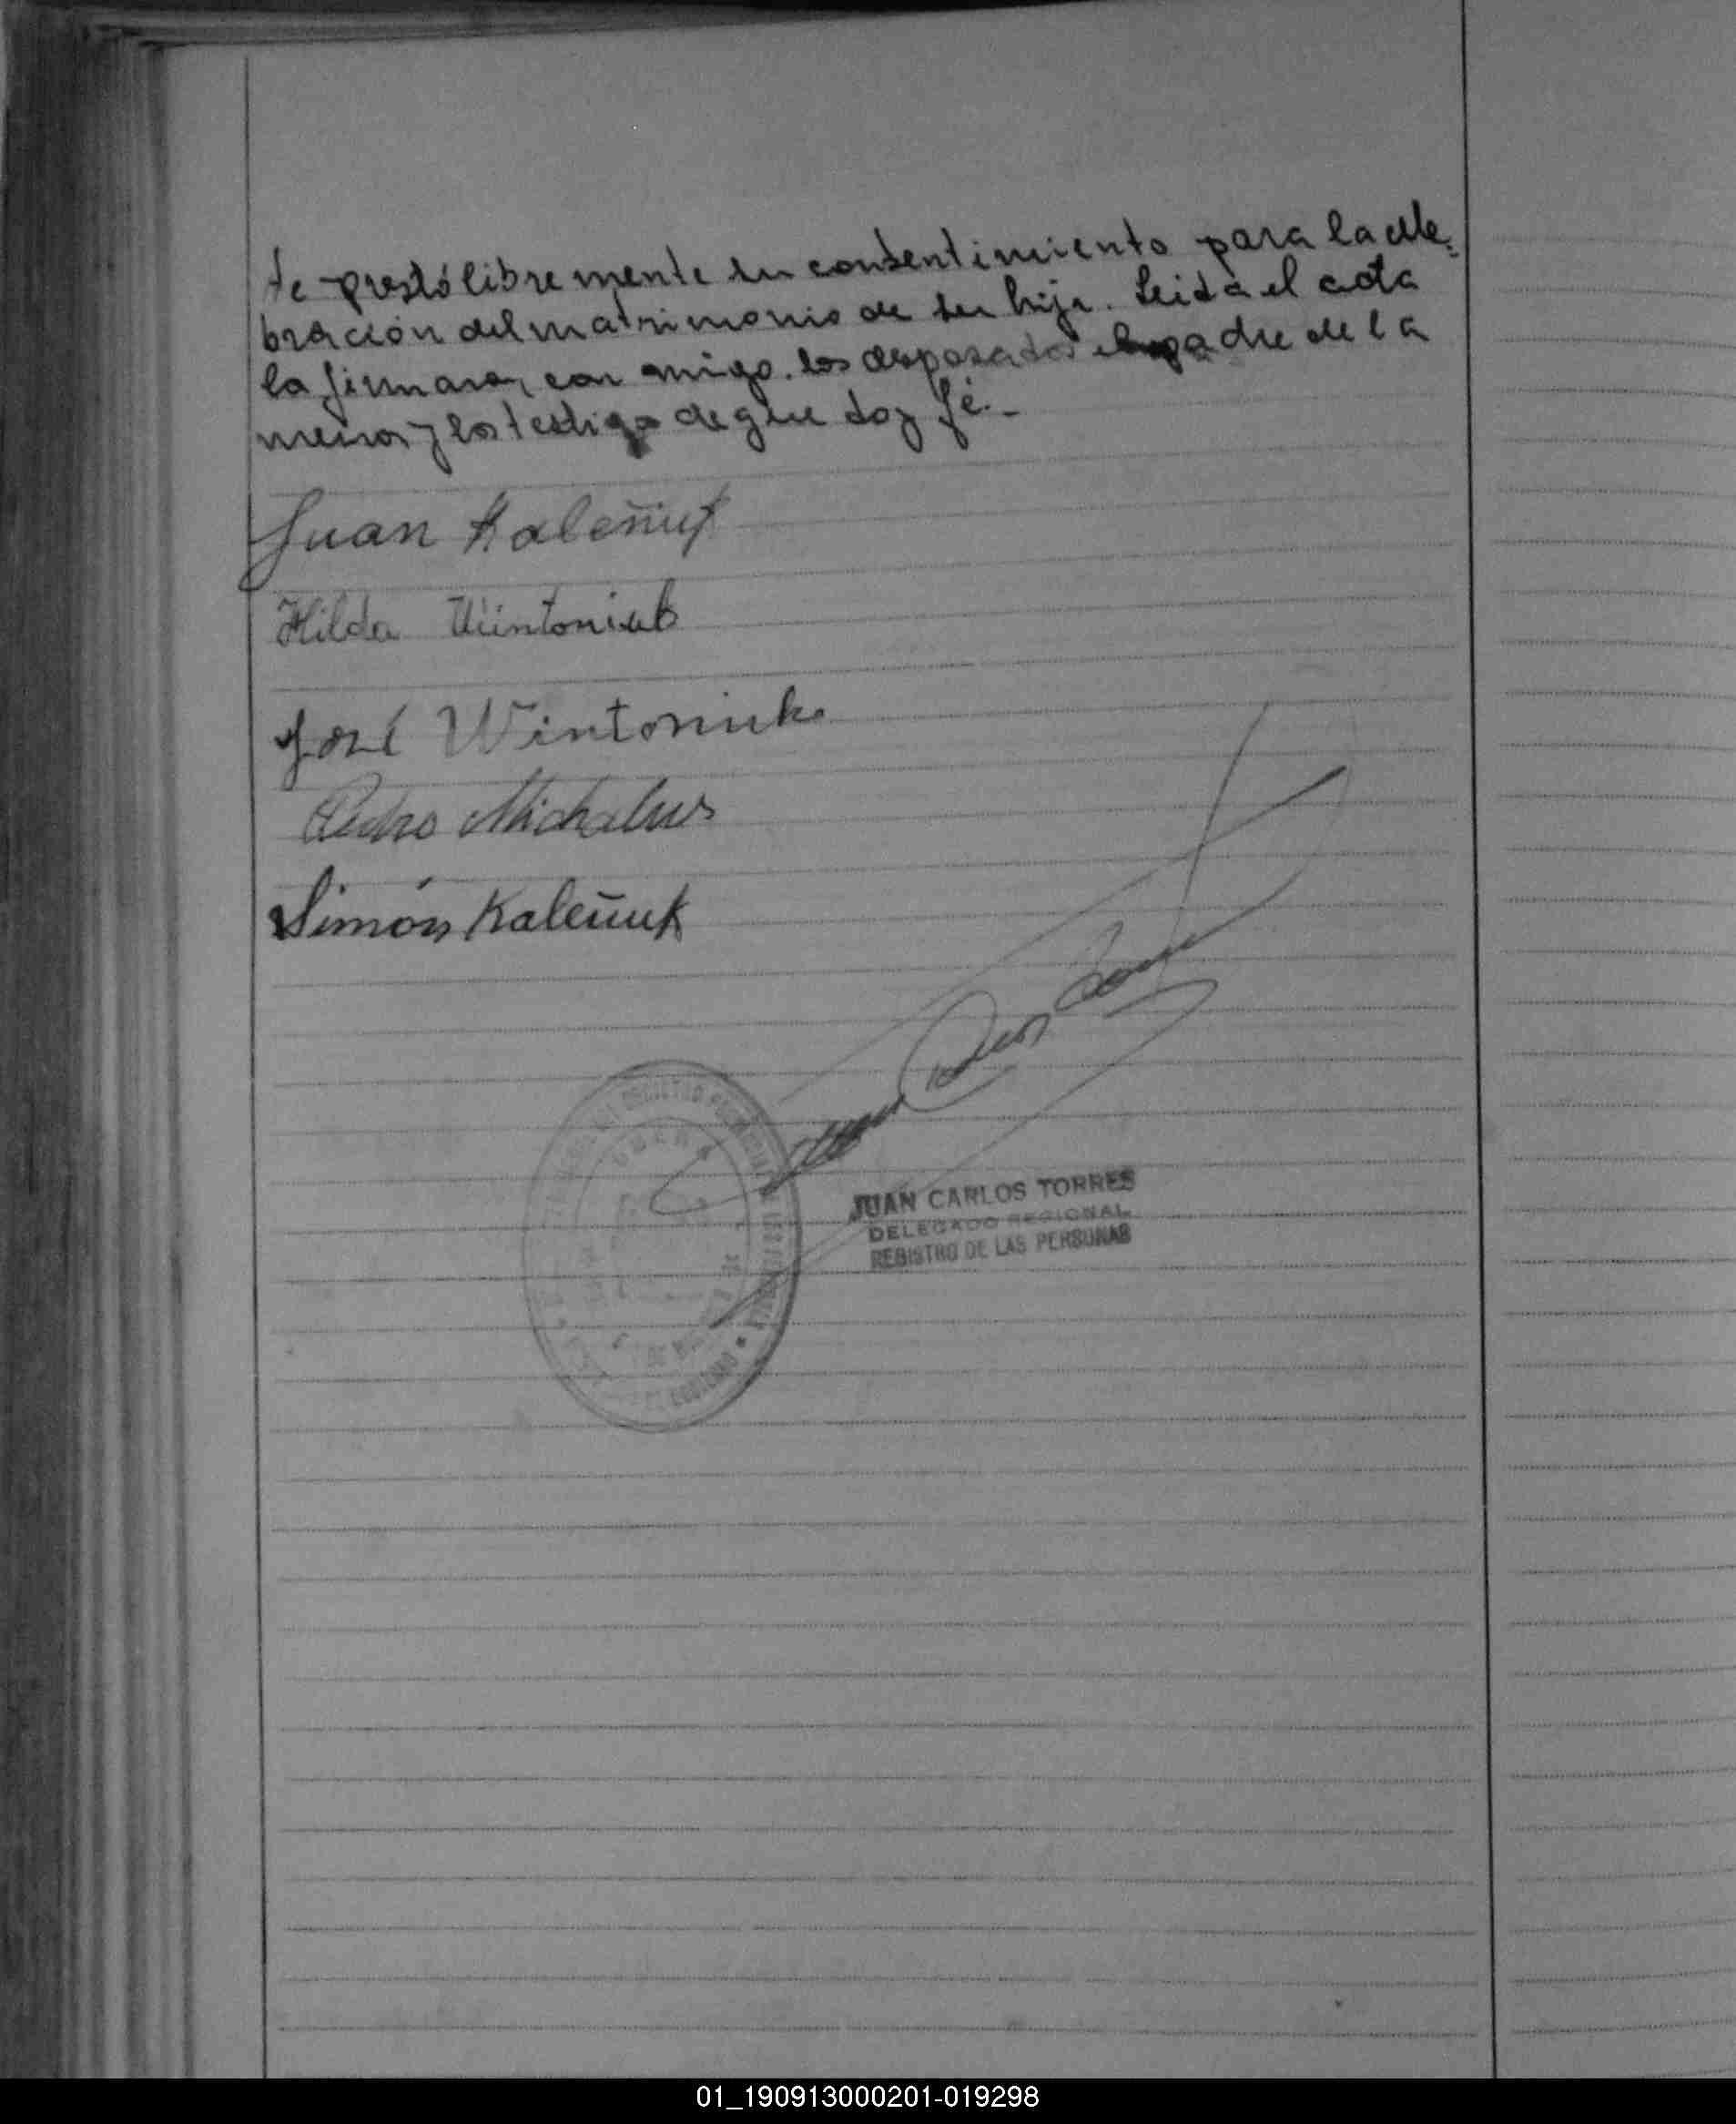 te prestó libremente su consentimiento para la cele-
bración del matrimonio de su hija. Leida el acta
la firmaron con migo. los desposados el padre de la
menor y los testigos de que doy fé.-
Juan Kaleñuk
Hilda Wintoniuk
José Wintoniuk
Pedro Michalus
Simón Kaleñuk
JUAN CARLOS TORRES
DELEGADO REGIONAL
REGISTRO DE LAS PERSONAS
01_190913000201-019298